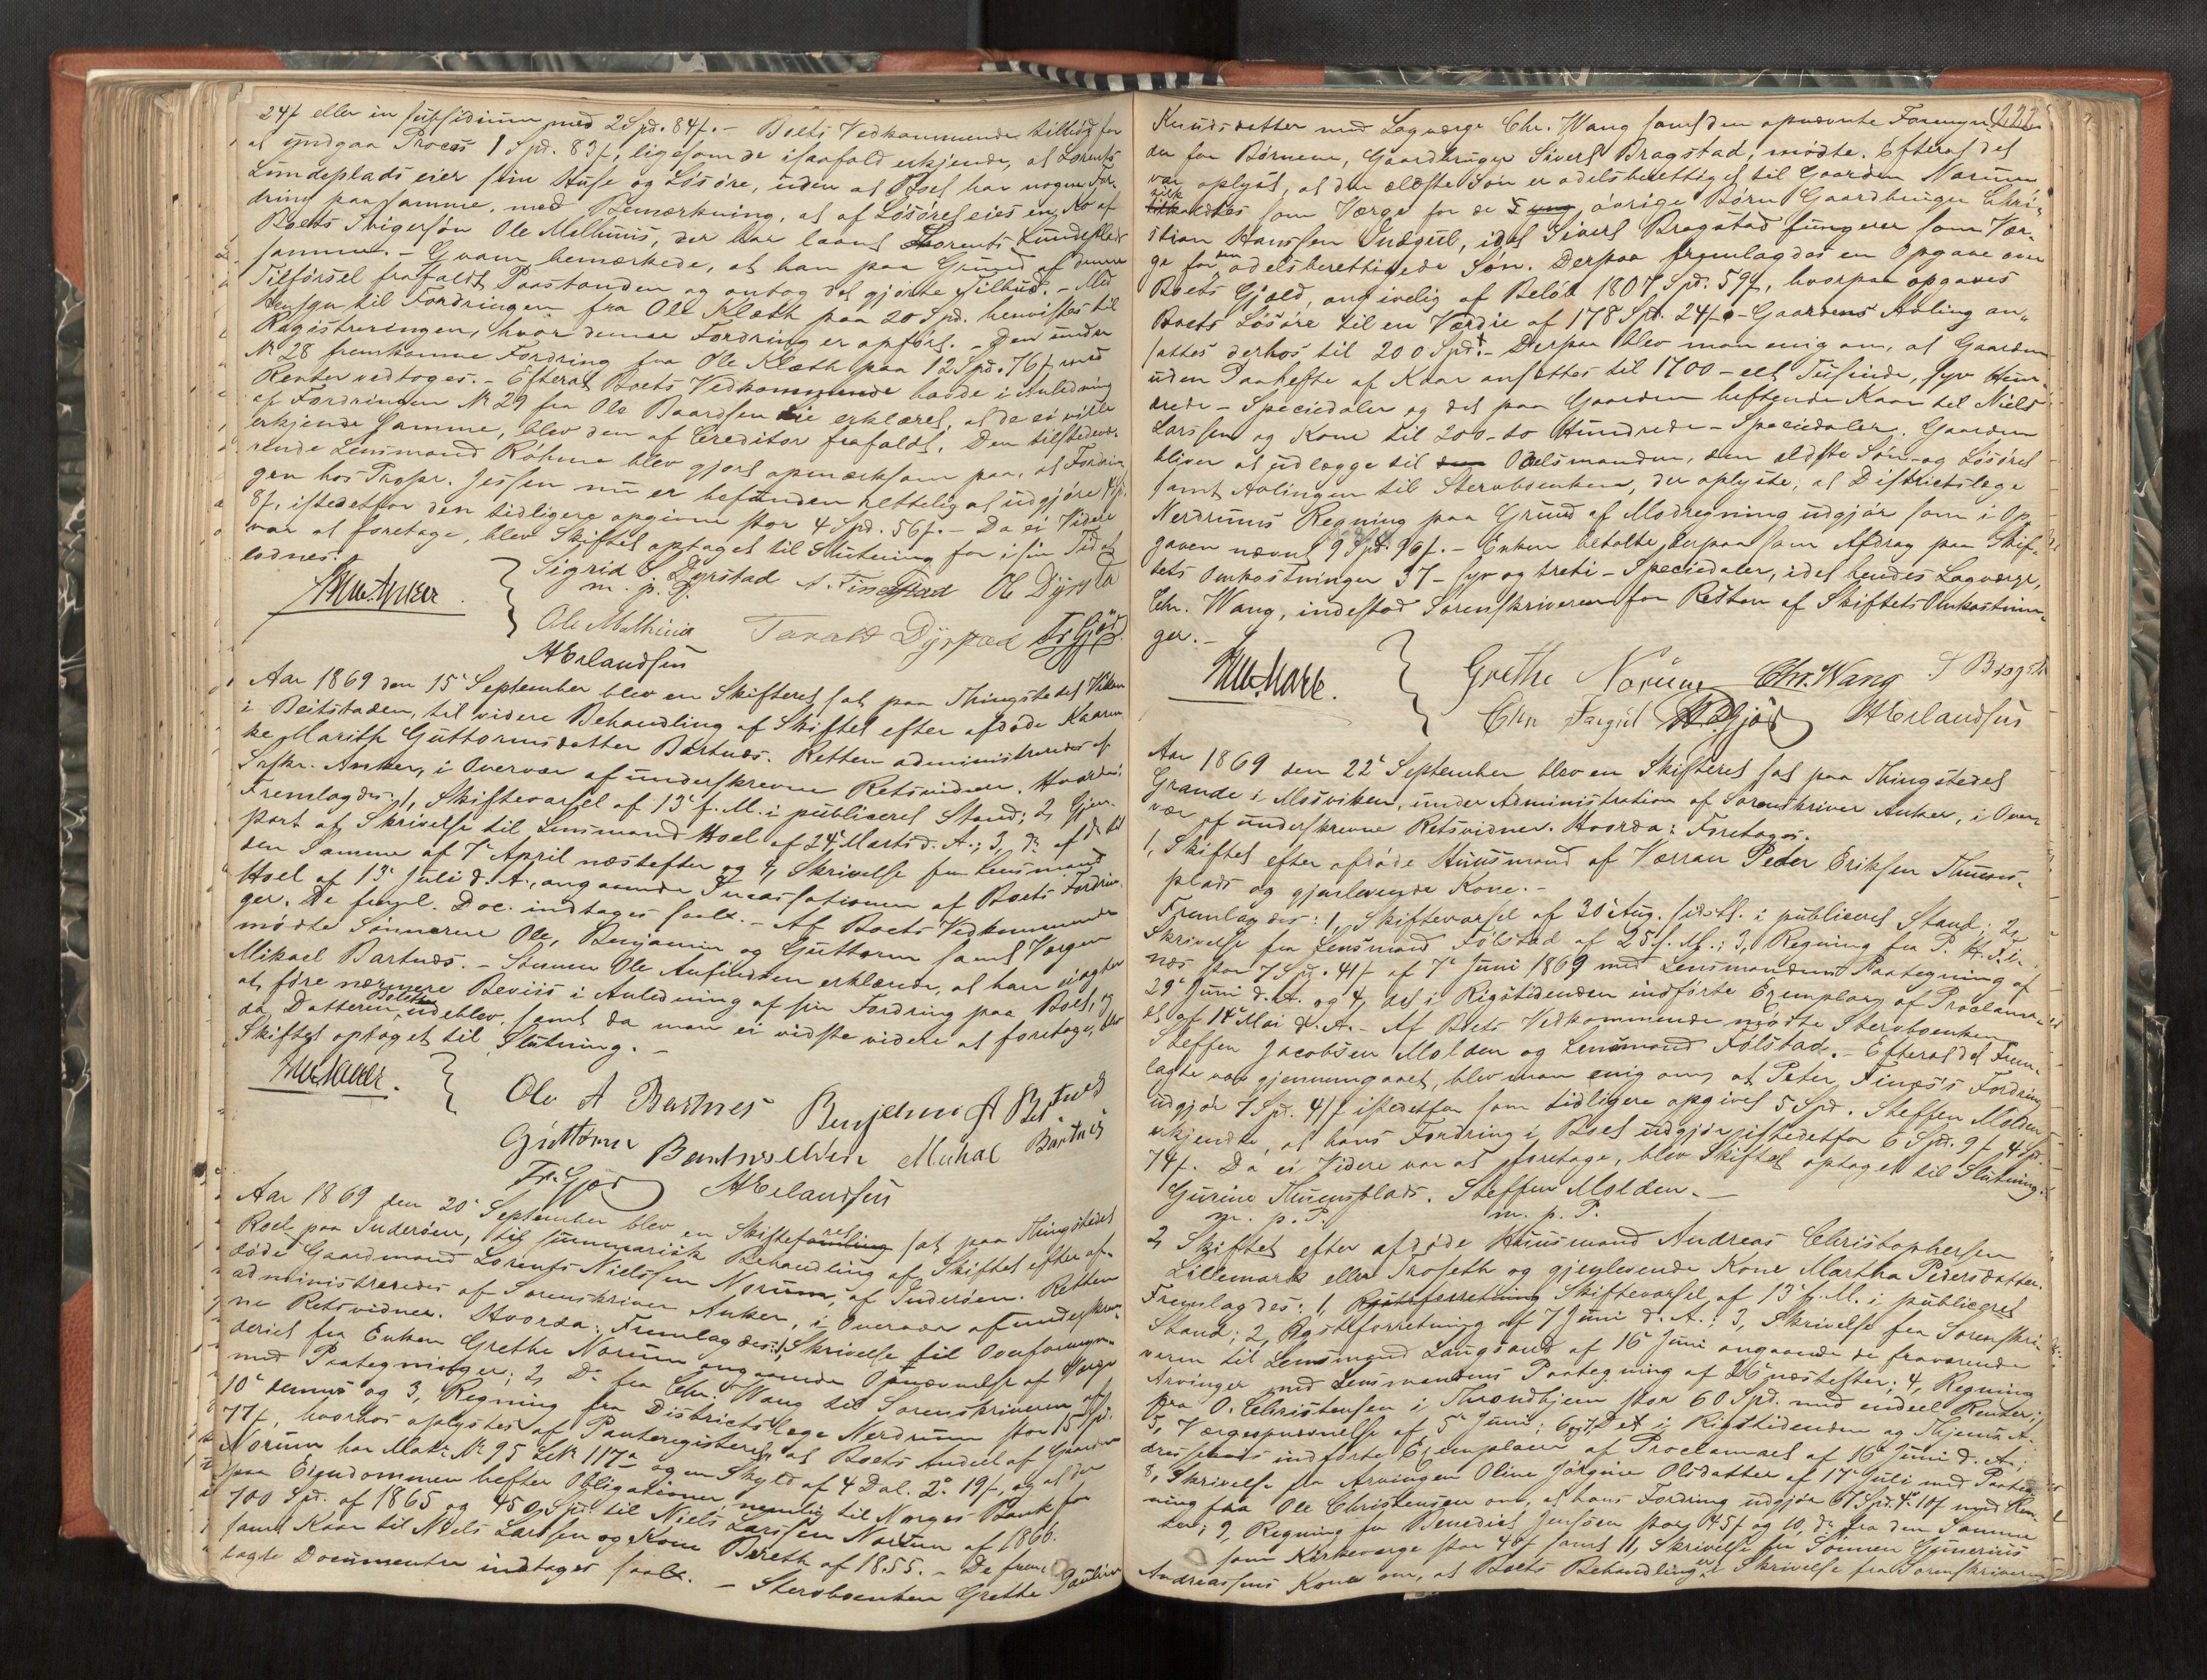 24f eller in subsidium med 2 Spd. 84f. – Boets Vedkommende tilbød for
at undgaa Proces 1 Spd. 83f, ligesom de isaafald erkjende, at Lorents
Lundeplads eier sine Huse og Løsøre, uden at Boet har nogen For-
dring paa samme, med Bemærkning, at af Løsøret eies en Ko af
Boets Svigersøn Ole Melhuus, der har laant Lorents Lundeplads
samme. – Qvam bemærkede, at han paa Grund af denne
Tilførsel frafaldt Paastanden og antog det gjorte Tilbud. – Med
Hensyn til Fordringen fra Ole Klæth paa 20 Spd. henvistes til
Registreringen, hvor denne Fordring er opført. – Den under
No 28 fremkomne Fordring fra Ole Klæth paa 12 Spd. 76f med
Renter vedtoges. – Efterat Boets Vedkommende havde i Anledning
af Fordringen No 29 fra Ole Baardsen Lie erklæret, at de ei vilde
erkjende samme, blev den af Creditor frafaldt. Den tilstedevæ-
rende Lensmand Røhme blev gjort opmærksom paa, at Fordrin-
gen hos Propr. Jessen nu er befunden rettelig at udgjøre 4 Spd.
8f, istedetfor den tidligere opgivne stor 4 Spd. 56f. – Da ei Videre
var at foretage, blev Skiftet optaget til Slutning for i sin Tid at
ednes.
Anker.
Sigrid Dyrstad
m. p. P.
Ole Dyrstad
Ole Melhuus Tarald Dyrstad Fr. Gjør
HErlandsen
Aar 1869 den 15de September blev en Skifteret sat paa Thingstedet Viken
i Beitstaden, til videre Behandling af Skiftet efter afdøde Kaaren-
ke Marith Guttormsdatter Bartnæs. Retten administreredes af
Srskr. Anker, i Overvær af underskrevne Retsvidner. Hvorda:
Fremlagdes: 1, Skiftevarsel af 13de f. M. i publiceret Stand; 2, Gjen-
part af Skrivelse til Lensmand Hoel af 24de Marts d. A.; 3, do af do til
den Samme af 7de April næstefter og 4, Skrivelse fra Lensmand
Hoel af 13de Juli d. A., angaaende Incassationen af Boets Fordrin-
ger. De freml. Doc. indtages saal. – Af Boets Vedkommende
mødte Sønnerne Ole, Benjamin og Guttorm samt Vergen
Mikael Bartnæs. – Sønnen Ole Anfindsen erklærede, at han ei agter
at føre nærmere Beviis i Anledning af sin Fordring paa Boet, og
da Datteren udeblev, samt da man ei vidste videre at foretage, blev
Skiftet optaget til Slutning. –
Anker.
Ole A Bartnes Benjamin A Bartnes
Guttorm Bartnes Mikal Bartnes
Fr. Gjør HErlandsen
Aar 1869 den 20de September blev en Skifteret sat paa Thingstedet
Roel paa Inderøen, til summarisk Behandling af Skiftet efter af-
døde Gaardmand Lorents Nielssen Norum, af Inderøen. Retten
administreredes af Sorenskriver Anker, i Overvær af underskrev-
ne Retsvidner. Hvorda: Fremlagdes: 1, Skrivelse til Overformyn-
deriet fra Enken Grethe Norum angaaende Opnævnelse af Verge
med Paategninger; 2, Do fra Chr. Wang til Sorenskriveren af
10de dennes og 3, Regning fra Districtslæge Nerdrum stor 15 Spd.
77f, hvorhos oplystes af Panteregisteret, at Boets Andeel af Gaarden
Norum har Matr. No 95 Løb. 117a og en Skyld af 4 Dal. 2 o 19f, og at der
paa Eiendommen hefter Obligationer, nemlig til Norges Bank for
700 Spd. af 1865 og 450 Spd. til Niels Larssen Norum af 1866.
samt Kaar til Niels Larssen og Kone Bereth af 1855. – De frem-
lagte Documenter indtages saal. – Stervboenken Grethe Pauline
222
Knudsdatter med Lagværge Chr. Wang samt den opnævnte Formyn-
der for Børnene, Gaardbruger Sivert Bragstad, mødte. Efterat det
var oplyst, at den ældste Søn er odelsberettiget til Gaarden Norum
som Værge for de øvrige Børn Gaardbruger Chri-
stian Hanssen Indgul, idet Sivert Bragstad fungerer som Vær-
ge for den odelsberettigede Søn. Derpaa fremlagdes en Opgave over
Boets Gjæld, angivelig af Beløb 1807 Spd. 59f, hvorpaa opgaves
Boets Løsøre til en Værdie af 178 Spd. 24f – Gaardens Avling an-
sattes derhos til 200 Spd. – Derpaa blev man enig om, at Gaarden
uden Paahefte af Kaar ansættes til 1700 – eet Tusinde, syv Hun-
drede – Speciedaler og det paa Gaarden heftende Kaar til Niels
Larssen og Kone til 200 – to Hundrede – Speciedaler. Gaarden
bliver at udlægge til Odelsmanden, den ældste Søn – og Løsøret
samt Avlingen til Stervboenken, der oplyste, at Districtslæge
Nerdrums Regning paa Grund af Modregning udgjør som i Op-
gaven nævnt 9 Spd. 96f. – Enken betalte derpaa som Afdrag paa Skif-
tets Omkostninger 37 – syv og treti – Speciedaler, idet hendes Lagværge,
Chr. Wang, indestod Sorenskriveren for Resten af Skiftets Omkostnin-
ger. –
Anker.
Grethe Norum Chr. Wang S Bragstad
Chr Fr. Gjør HErlandsen
Aar 1869 den 22de September blev en Skifteret sat paa Thingstedet
Grande i Mosviken, under Administration af Sorenskriver Anker, i Over-
vær af underskrevne Retsvidner. Hvorda: Foretoges:
1, Skiftet efter afdøde Huusmand af Værran Peder Eriksen Thuens-
plads og gjenlevende Kone. –
Fremlagdes: 1, Skiftevarsel af 30te Aug. sidstl. i publiceret Stand; 2,
Skrivelse fra Lensmand Følstad af 25 f. M.; 3, Regning fra P. H. Fi-
næs stor 7 Spd. 41f af 7de Juni 1869 med Lensmandens Paategning af
29de Juni d. A. og 4, det i Rigstidenden indførte Exemplar af Proclama-
et af 14de Mai d. A. – Af Boets Vedkommende mødte Stervboenken
Steffen Jacobsen Molden og Lensmand Følstad. – Efterat det Frem-
lagte var gjennemgaaet, blev man enig om, at Peter Finæs's Fordring
udgjør 7 Spd. 41f istedetfor som tidligere opgivet 5 Spd. Steffen Molden
erkjendte, at hans Fordring i Boet udgjør istedetfor 6 Spd. 9f 4 Spd.
74f. Da ei Videre var at foretage, blev Skiftet optaget til Slutning.
Gurine Thuensplads. Steffen Molden. –
m. p. P. m. p. P.
2, Skiftet efter afdøde Huusmand Andreas Christophersen
Lillemark eller Troseth og gjenlevende Kone Martha Pedersdatter.
Fremlagdes: 1, Skiftevarsel af 13de f. M. i publiceret
Stand; 2, Rgstrforretning af 7 Juni d. A.; 3, Skrivelse fra Sorenskri-
veren til Lensmand Langsand af 16de Juni angaaende de fraværende
Arvinger med Lensmandens Paategning af 26de næstefter; 4, Regning
fra O. Christensen i Throndhjem stor 60 Spd. med endeel Renter;
5, Værgeopnævnelse af 5te Juni; 6 og 7, Det i Rigstidenden og Thjems A-
dresseavis indførte Exemplarer af Proclamaet af 16de Juni d. A.;
8, Skrivelse fra Arvingen Oline Jørgine Olsdatter af 17de Juli med Paateg-
ning fra Ole Christensen om, at hans Fordring udgjør 67 Spd. 4 o 10f med Ren-
ter; 9, Regning fra Benedict Jensøen stor 45f og 10, do fra den Samme
som Kirkeværge stor 40f samt 11, Skrivelse fra Sønnen Gunerius
Andreassens Kone om, at Boets Behandling Skrivelse fra Sorenskriveren